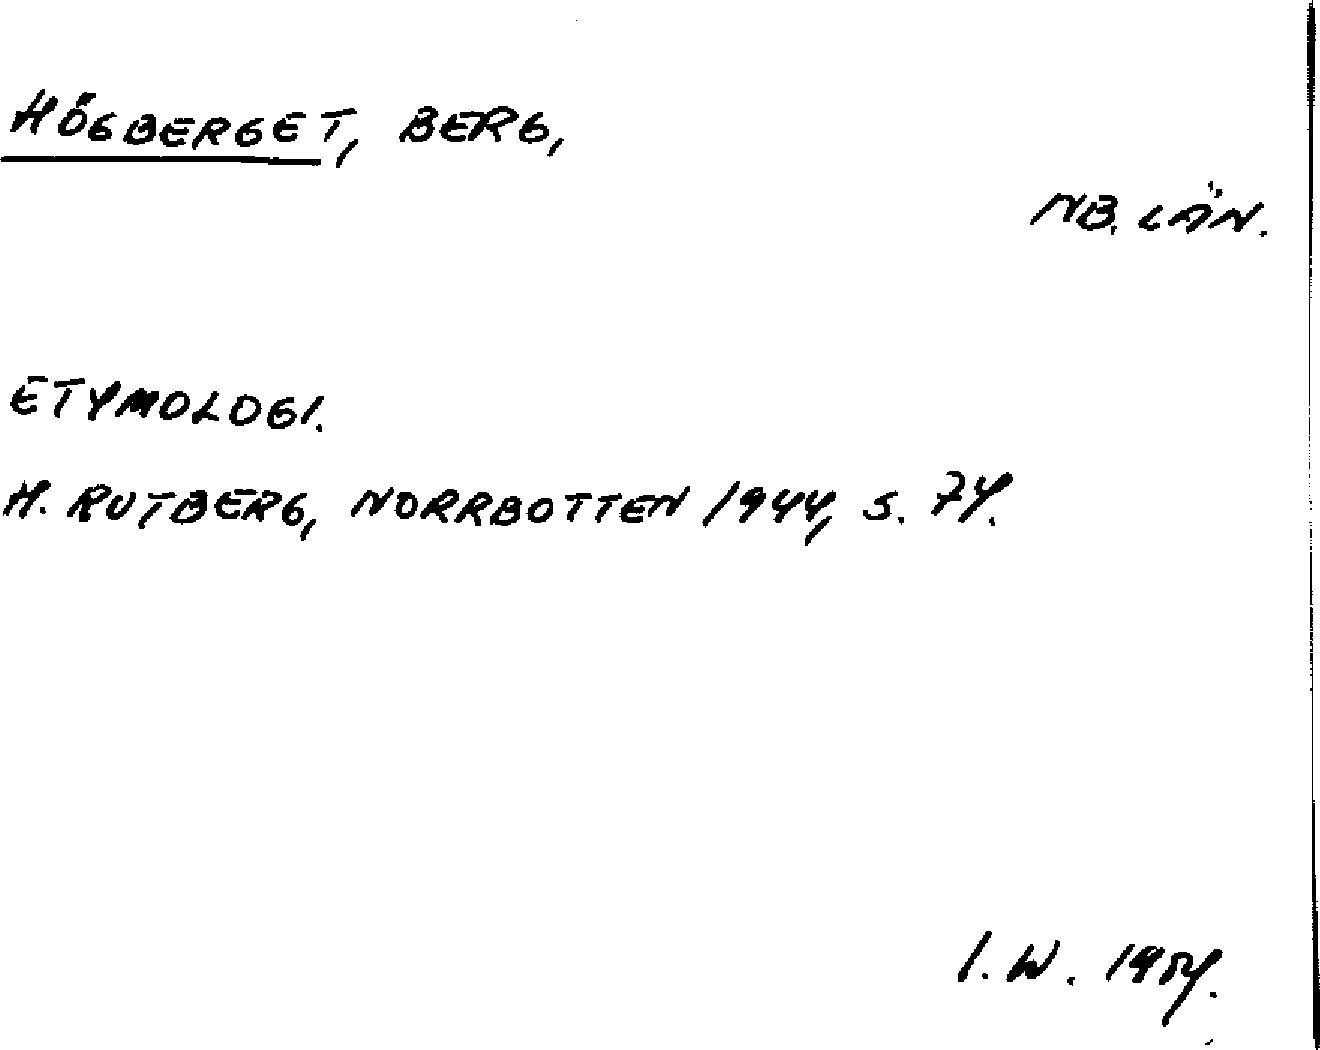 HÖGBERGET, BERG,
NB. LÄN.
ETYMOLOGI.
H. RUTBERG, NORRBOTTEN 1944, S. 74.
I. W. 1954.